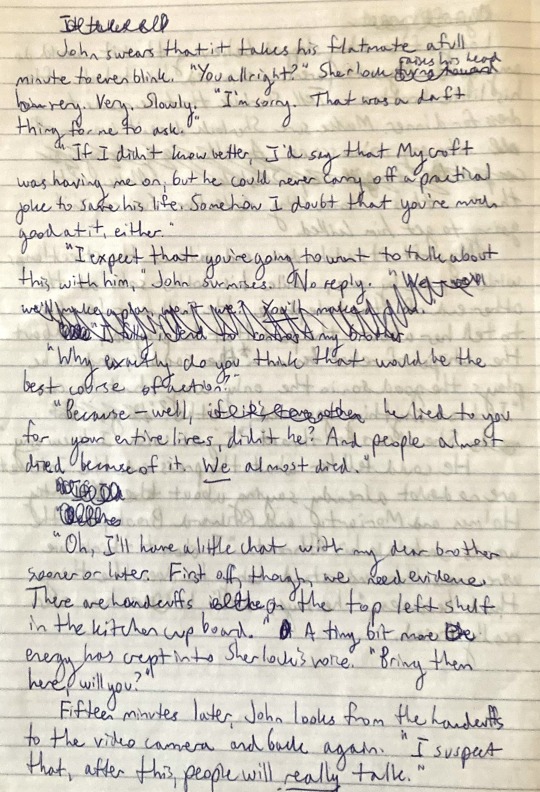 John swears that it takes his flatmate a full
minute to even blink. "You allright?" Sherlock raises his head
very. Very. Slowly. "I'm sorry. That was a daft
thing for me to ask."
"If I didn't know better, I'd say that Mycroft
was having me on, but he could never carry off a practical
joke to save his life. Somehow I doubt that you're much
good at it, either."
"I expect that you're going to want to talk about
this with him," John surmises. No reply.
"Why exactly do you think that would be the
best course of action?"
"Because – well, he lied to you
for your entire lives, didn't he? And people almost
died because of it. We almost died."
"Oh, I'll have a little chat with my dear brother
sooner or later. First off, though, we need evidence.
There are handcuffs on the top left shelf
in the kitchen cup board." A tiny bit more
energy has crept into Sherlock's voice. "Bring them
here, will you?"
Fifteen minutes later, John looks from the handcuffs
to the video camera and back again. "I suspect
that, after this, people will really talk."